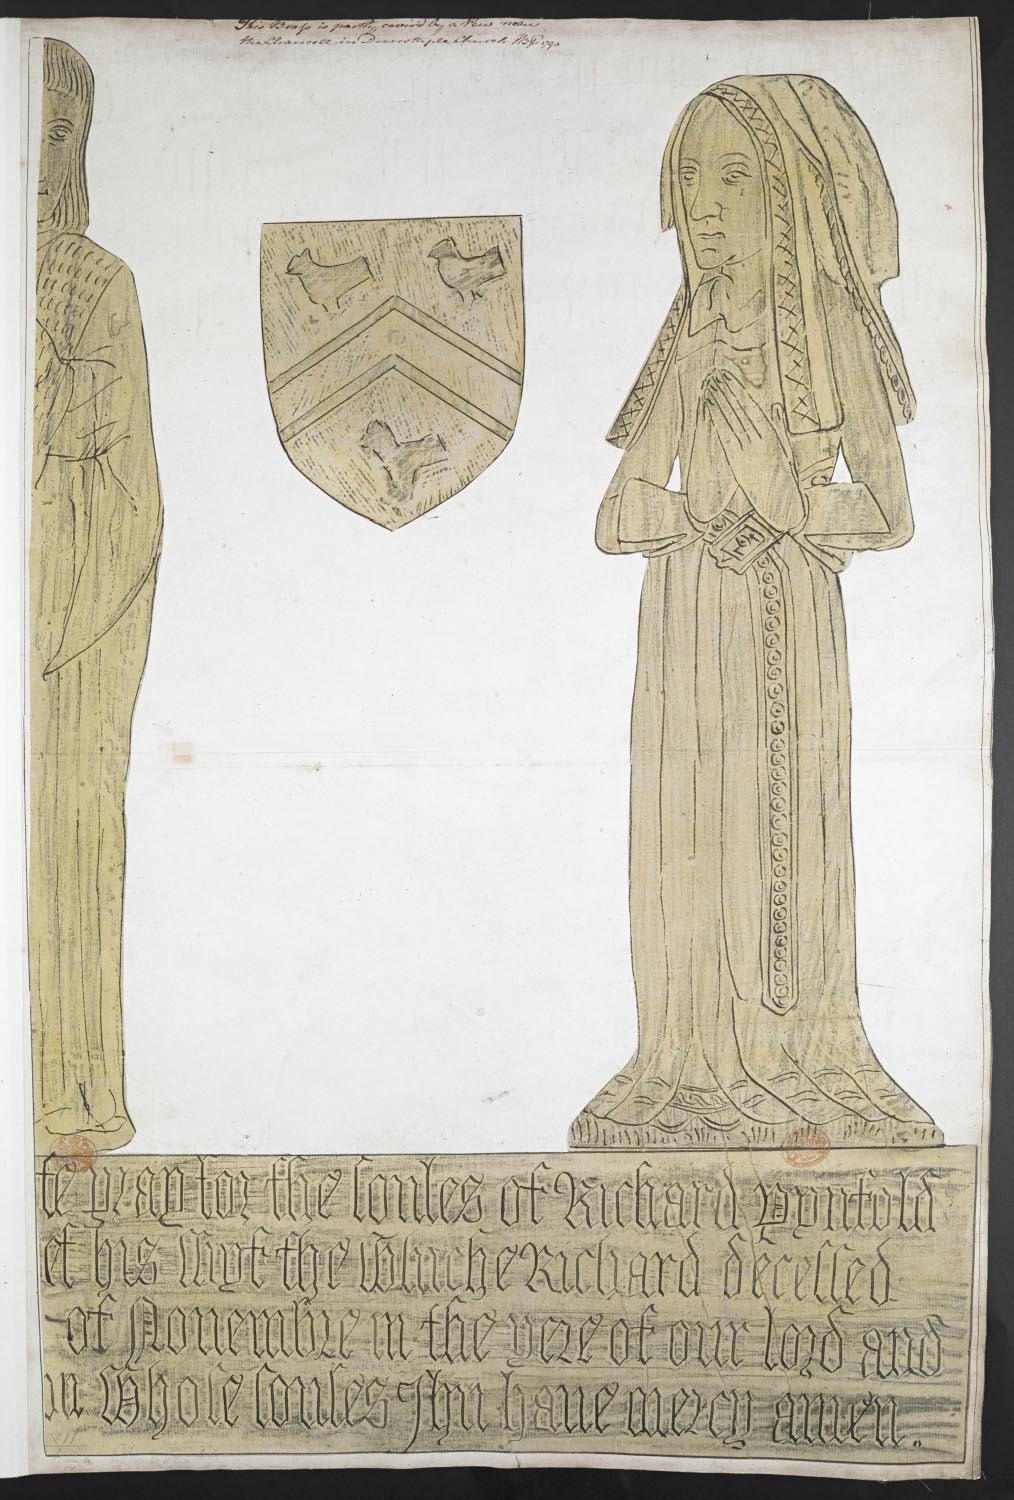 This Brass is partly cover'd by a Pew near
the Chancell in Dunstaple Church 1790
se pray for the soules of Richard Pynfold
et his Wyf the Whiche Richard decessed
of Nouembre in the yere of our lord and
in Whose soules Jhu haue mercy amen.